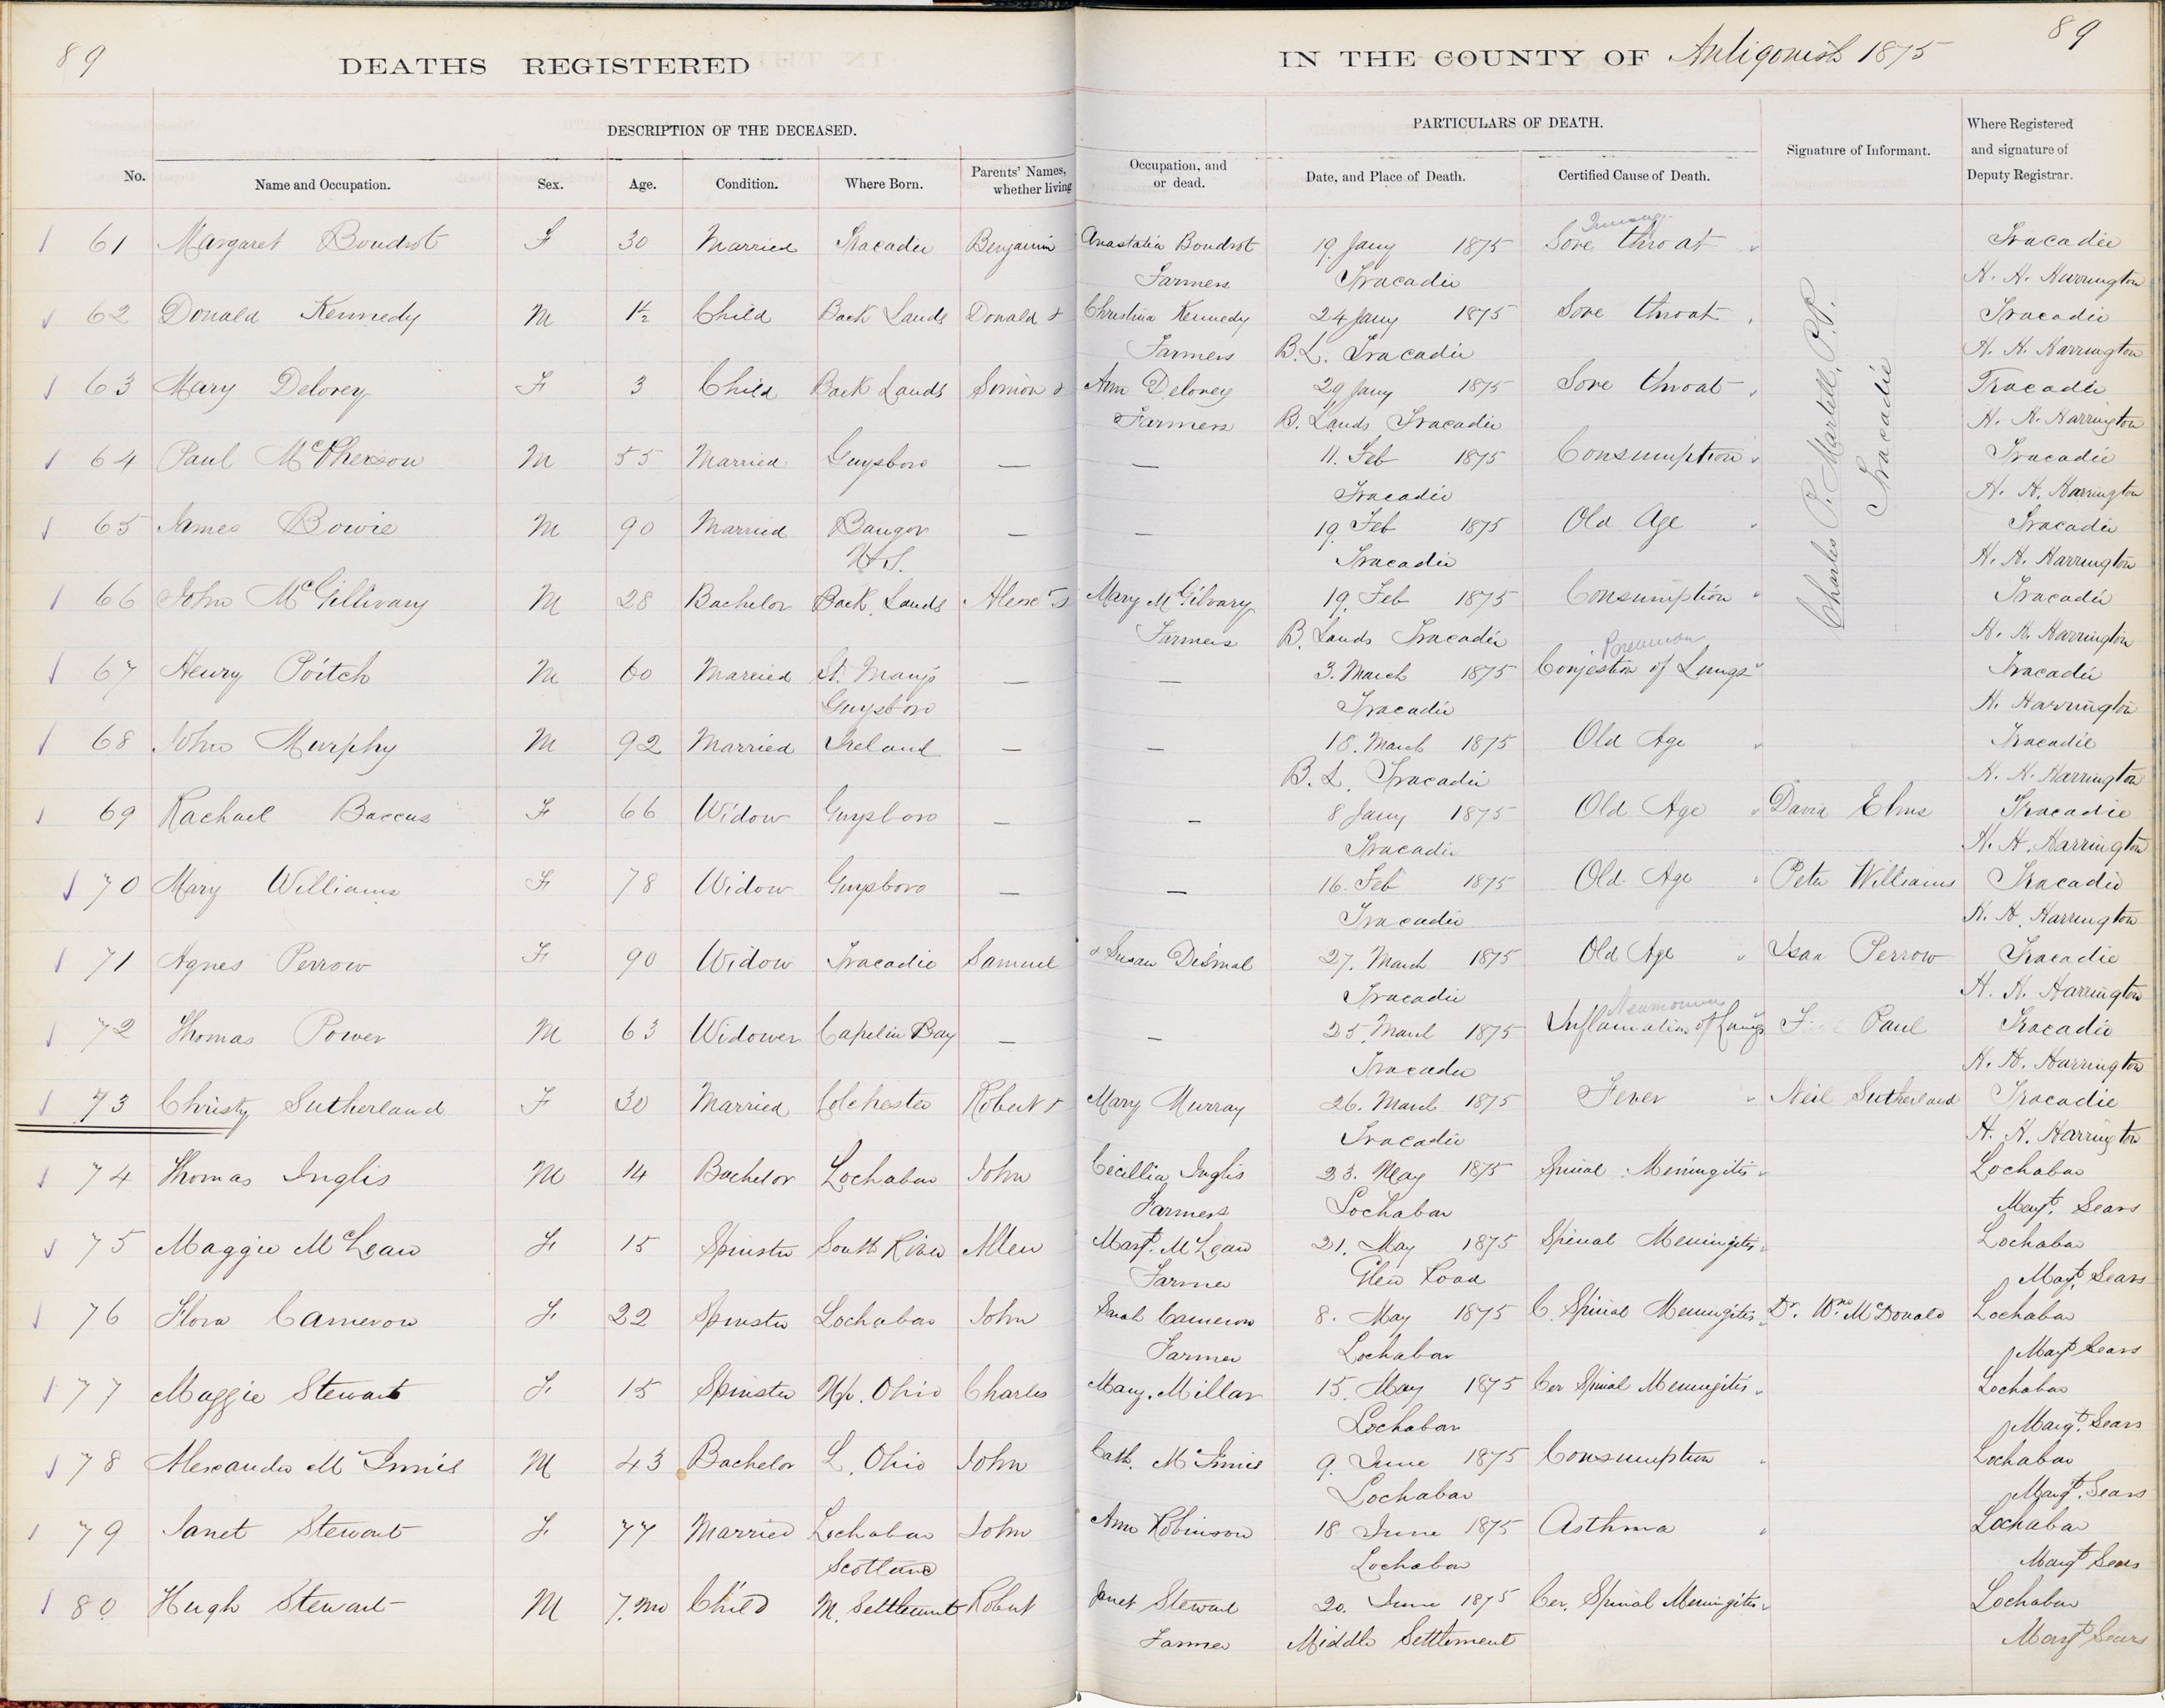 89
89
DEATHS REGISTERED IN THE COUNTY OF Antigonish 1875
DESCRIPTION OF THE DECEASED. PARTICULARS OF DEATH.
No. Name and Occupation. Sex. Age. Condition. Where Born. Parents' Names, whether living Occupation, and or dead. Date, and Place of Death. Certified Cause of Death. Signature of Informant. Where Registered and signature of Deputy Registrar.
61 Margaret Boudrot F 30 Married Tracadie Benjamin Anastatia Boudrot 19. Jany 1875 Sore throat Tracadie
Farmers Tracadie H. H. Harrington
62 Donald Kennedy M 1½ Child Back Lands Donald & Christina Kennedy 24 Jany 1875 Sore throat Tracadie
Farmers B. L. Tracadie H. H. Harrington
63 Mary Delorey F 3 Child Back Lands Simon & Ann Delorey 29 Jany 1875 Sore throat Tracadie
Farmers B. Lands Tracadie H. H. Harrington
64 Paul McPherson M 55 Married Guysboro — — 11. Feb 1875 Consumption Tracadie
Tracadie H. H. Harrington
65 James Bowie M 90 Married Bangor — — 19 Feb 1875 Old Age Tracadie
Tracadie H. H. Harrington
66 John McGillivary M 28 Bachelor Back Lands Alexr & Mary McGilvary 19. Feb 1875 Consumption Tracadie
Farmers B. Lands Tracadie H. H. Harrington
Charles P. Martell, P.P.
Tracadie
67 Henry Poitch M 60 Married St. Mary's — — 3. March 1875 Conjestion of Lungs Tracadie
Guysboro Tracadie H. Harrington
68 John Murphy M 92 Married Ireland — — 18. March 1875 Old Age Tracadie
B. L. Tracadie H. H. Harrington
69 Rachael Baccus F 66 Widow Guysboro — — 8 Jany 1875 Old Age David Elms Tracadie
Tracadie H. H. Harrington
70 Mary Williams F 78 Widow Guysboro — — 16. Feb 1875 Old Age Peter Williams Tracadie
Tracadie H. H. Harrington
71 Agnes Perrow F 90 Widow Tracadie Samuel & Susan Dismal 27. March 1875 Old Age Isaa Perrow Tracadie
Tracadie H. H. Harrington
72 Thomas Power M 63 Widower Capelin Bay — — 25. March 1875 Inflamation of Lungs Paul Tracadie
Tracadie H. H. Harrington
73 Christy Sutherland F 30 Married Colchester Robert & Mary Murray 26. March 1875 Fever Neil Sutherland Tracadie
Tracadie H. H. Harrington
74 Thomas Inglis M 14 Bachelor Lochaber John Cicillia Inglis 23. May 1875 Spinal Meningitis Lochabar
Farmers Lochabar Margt. Sears
75 Maggie McLean F 15 Spinster South River Allen Margt. McLean 21. May 1875 Spinal Meningitis Lochabar
Farmer Glen Road Margt. Sears
76 Flora Cameron F 22 Spinster Lochabar John Sarah Cameron 8. May 1875 C. Spinal Meningitis Dr. Wm. McDonald Lochabar
Farmer Lochabar Margt Sears
77 Maggie Stewart F 15 Spinster Up. Ohio Charles Mary. Millar 15. May 1875 Cer Spinal Meningitis Lochabar
Lochabar Margt. Sears
78 Alexander McInnis M 43 Bachelor L. Ohio John Cath. McInnis 9. June 1875 Consumption Lochabar
Lochabar Margt. Sears
79 Janet Stewart F 77 Married Lochabar John Ann Robinson 18 June 1875 Asthma Lochabar
Scotland Lochabar Margt Sears
80 Hugh Stewart M 7. mo Child M. Settlement Robert Janet Stewart 20. June 1875 Cer. Spinal Meningitis Lochabar
Farmer Middle Settlement Margt Sears